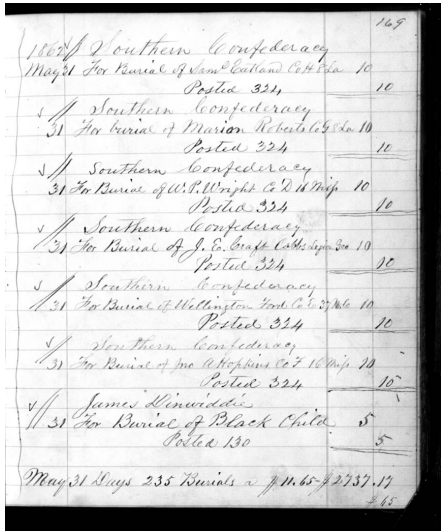 169
1862 Southern Confederacy
May 31 For Burial of Saml Eatland Co H 8 La 10
Posted 324 10
Southern Confederacy
31 For burial of Marion Roberts Co G 8 La 10
Posted 324 10
Southern Confederacy
31 For Burial of W. P. Wright Co D 16 Miss 10
Posted 324 10
Southern Confederacy
31 For Burial of J. E. Craft Legion Geo 10
Posted 324 10
Southern Confederacy
31 For Burial of Wellington Ford Co 10
Posted 324 10
Southern Confederacy
31 For Burial of Jno A Hopkins Co F 16 Miss 10
Posted 324 10
James Dinwiddie
31 For Burial of Black Child 5
Posted 130 5
May 31 Days 235 Burials a 11.65 - $2737.17